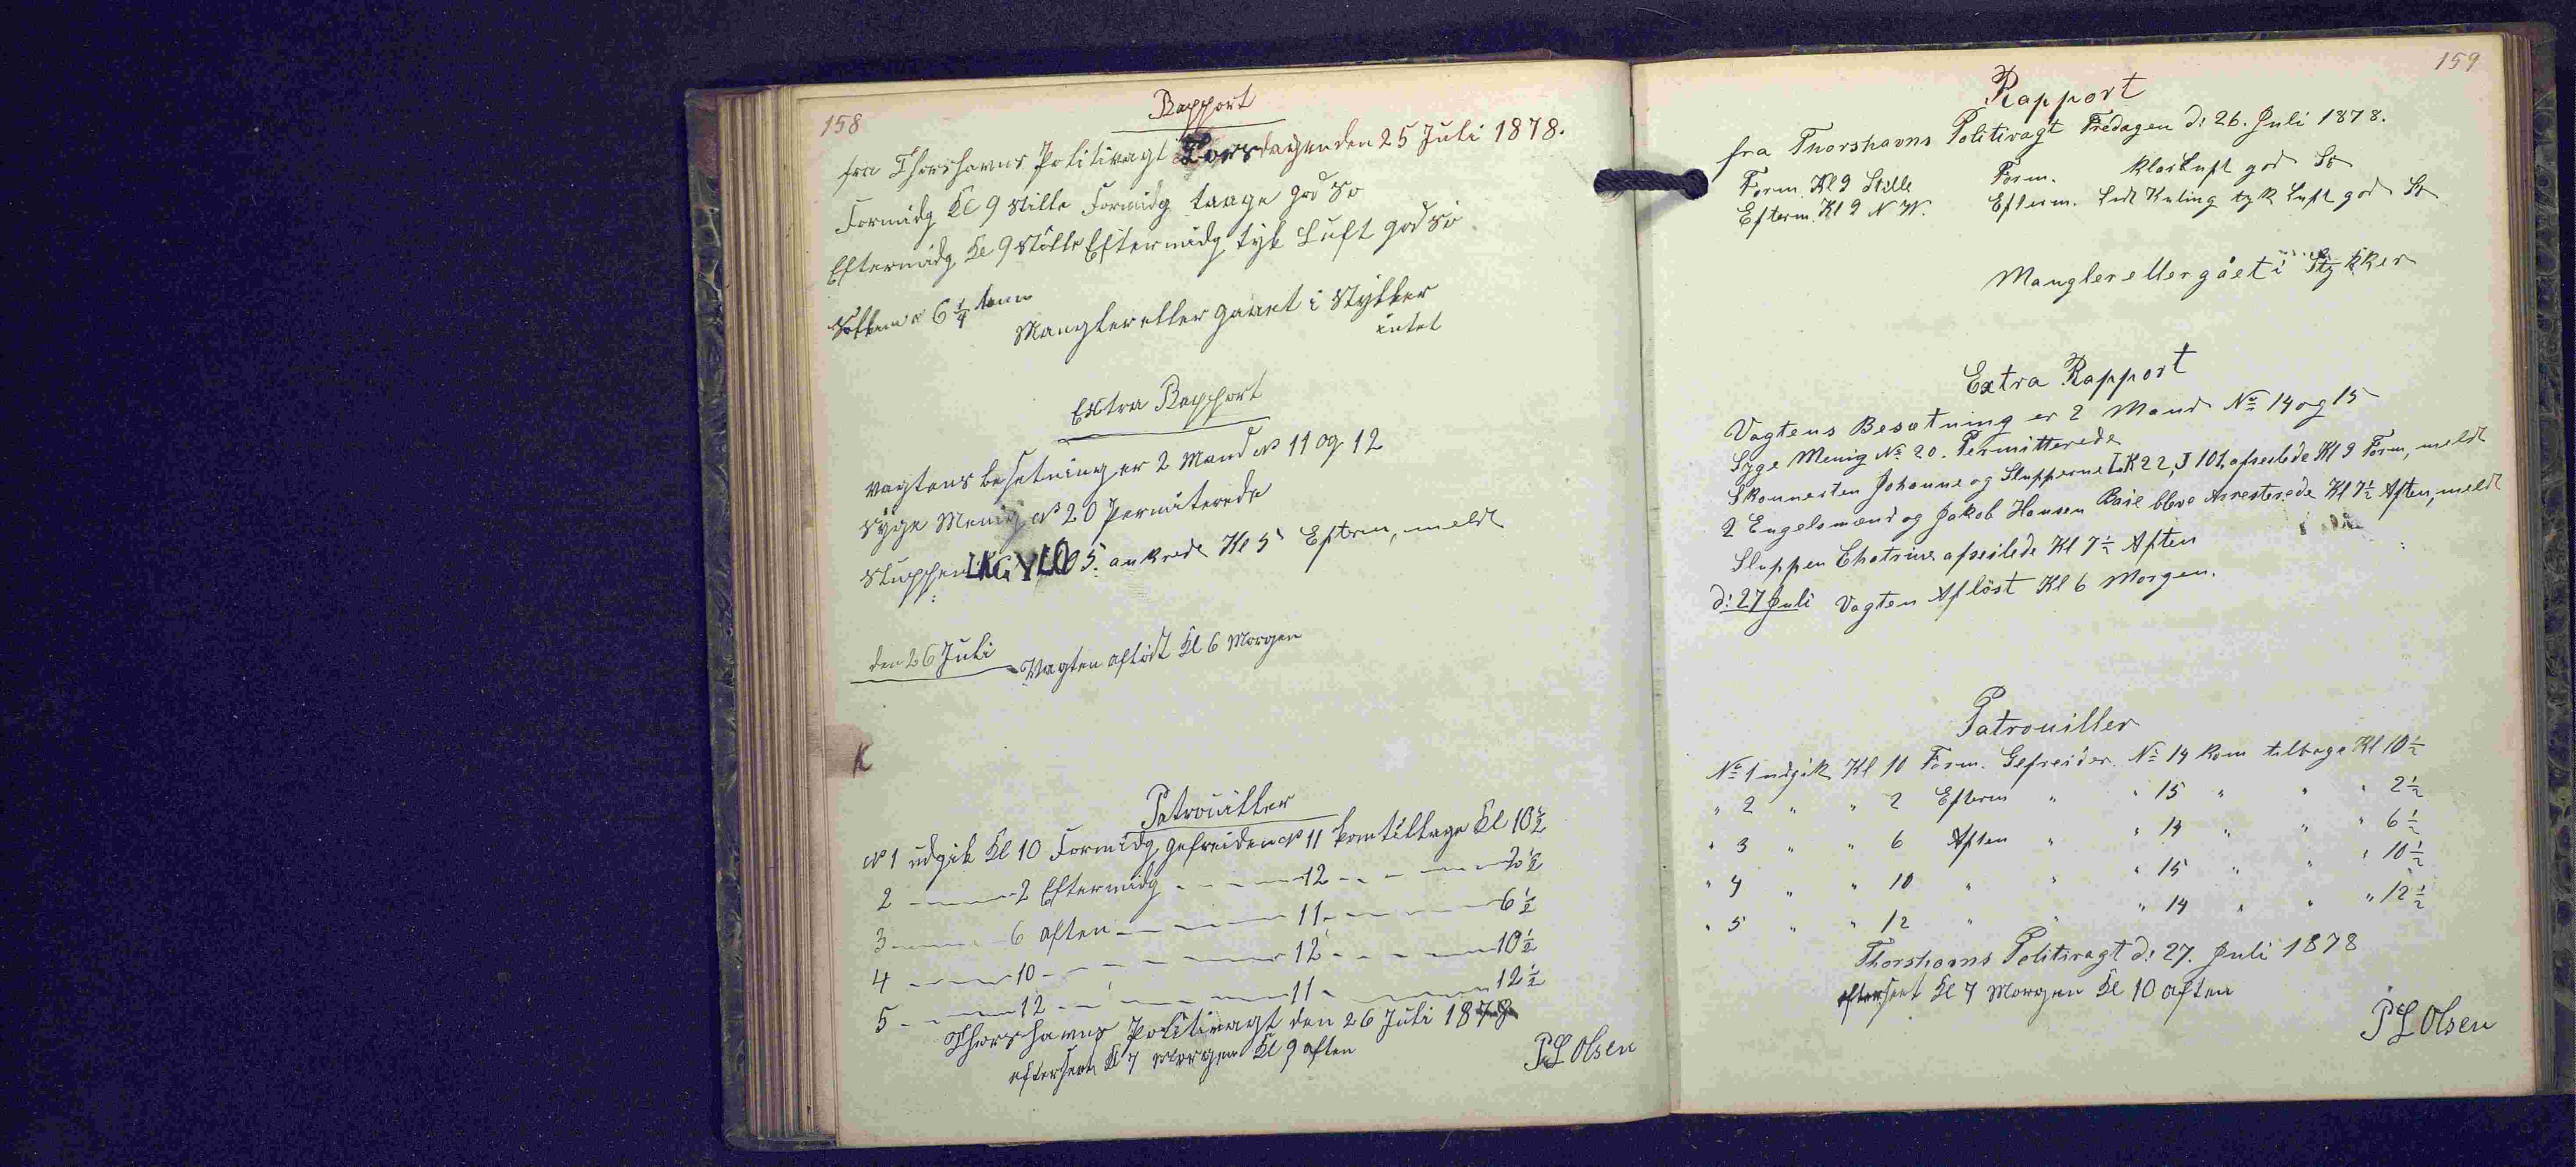 158
Rapport
fra Thorshavns Politivagt Torsdagen den 25 Juli 1878.
Formidg Kl 9 Stille Formidg taage god So
Eftermidg Kl 9 Stille Eftermidg tyk Luft god So
6 1/4
Mangler eller gaaet i Stykker
intet
Extra Rapport
Vagtens besetning er 2 Mand No 11 og 12
Syge Menig No 20 Permiterede
Sluppen 5. ankrede Kl 5 Efterm, meldt
den 26 Juli Vagten aflöst Kl 6 Morgen
K
Patrouiller
No 1 udgik Kl 10 Formidg gefreider No 11 kom tilbage Kl 10 1/2
2 — 2 Eftermidg — 12 — 2 1/2
3 — 6 aften — 11 — 6 1/2
4 — 10 — 12 — 10 1/2
5 — 12 — 11 — 12 1/2
Thorshavns Politivagt den 26 Juli 1878
efterseet Kl 7 Morgen Kl 9 aften
P L Olsen
159
Rapport
fra Thorshavns Politivagt Fredagen d: 26. Juli 1878.
Form. Kl 9 Stille Form. klar Luft god Sö
Efterm. Kl 9 N W. Efterm. Lidt Kuling tyk Luft god Sö
Mangler eller gået i Stykker
Extra Rapport
Vagtens Besætning er 2 Mand No 14 og 15
Syge Menig No 20. Permitterede
Skonnerten Johanne og Slupperne LK 22, J 101, afseilede Kl 9 Form, meldt
2 Engelsmænd og Jakob Hansen bleve Arresterede Kl 7 1/2 Aften, meldt
Sluppen Chatrine afseilede Kl 7 1/2 Aften
d: 27 Juli Vagten Aflöst Kl 6 Morgen.
Patrouiller
No 1 udgik Kl 10 Form. Gefreider No 14 kom tilbage Kl 10 1/2
" 2 " " 2 Efterm " " 15 " " " 2 1/2
" 3 " " 6 Aften " " 14 " " " 6 1/2
" 4 " " 10 " " " 15 " " " 10 1/2
" 5 " " 12 " " " 14 " " " 12 1/2
Thorshavns Politivagt d: 27. Juli 1878
efterseet Kl 7 Morgen Kl 10 aften
P L Olsen